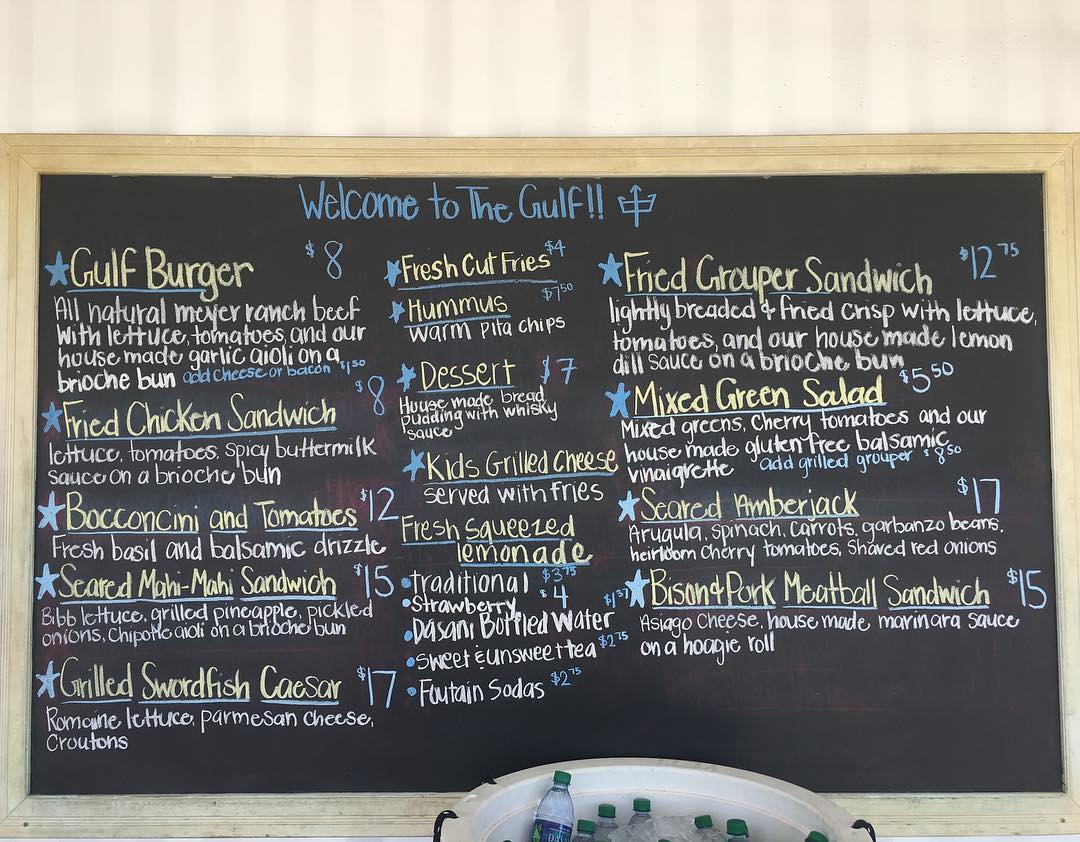 Welcome to The Gulf!!
Gulf Burger $8
All natural meyer ranch beef
with lettuce, tomatoes, and our
house made garlic aioli on a
brioche bun add cheese or bacon $1.50
Fried Chicken Sandwich $8
lettuce, tomatoes, spicy buttermilk
sauce on a brioche bun
Bocconcini and Tomatoes $12
Fresh basil and balsamic drizzle
Seared Mahi-Mahi Sandwich $15
Bibb lettuce, grilled pineapple, pickled
onions, chipotle aioli on a brioche bun
Grilled Swordfish Caesar $17
Romaine lettuce, parmesan cheese,
Croutons
Fresh Cut Fries $4
Hummus $7.50
warm pita chips
Dessert $7
House made bread
pudding with whisky
sauce
Kids Grilled Cheese
served with fries
Fresh squeezed
lemonade
traditional $3.75
Strawberry $4
Dasani Bottled Water $1.37
sweet & unsweet tea $2.75
Foutain Sodas $2.75
Fried Grouper Sandwich $12.75
lightly breaded & fried crisp with lettuce,
tomatoes, and our house made lemon
dill sauce on a brioche bun
Mixed Green Salad $5.50
Mixed greens, Cherry tomatoes and our
house made gluten free balsamic
vinaigrette add grilled grouper $8.50
Seared Amberjack $17
Arugula, spinach, carrots, garbanzo beans,
heirloom cherry tomatoes, shaved red onions
Bison & Pork Meatball Sandwich $15
Asiago Cheese, house made marinara sauce
on a hoagie roll